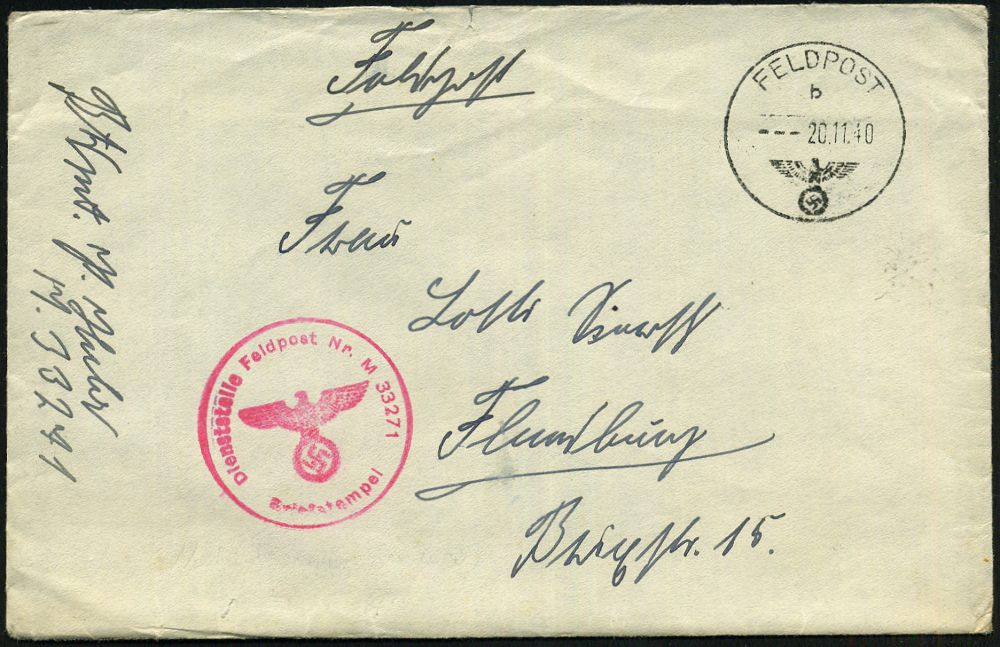 Feldpost
FELDPOST
b
--- 20.11.40
Frau
Lotte
Flensburg
str. 15.
Dienststelle Feldpost Nr. M 33271
Briefstempel
M. 33271